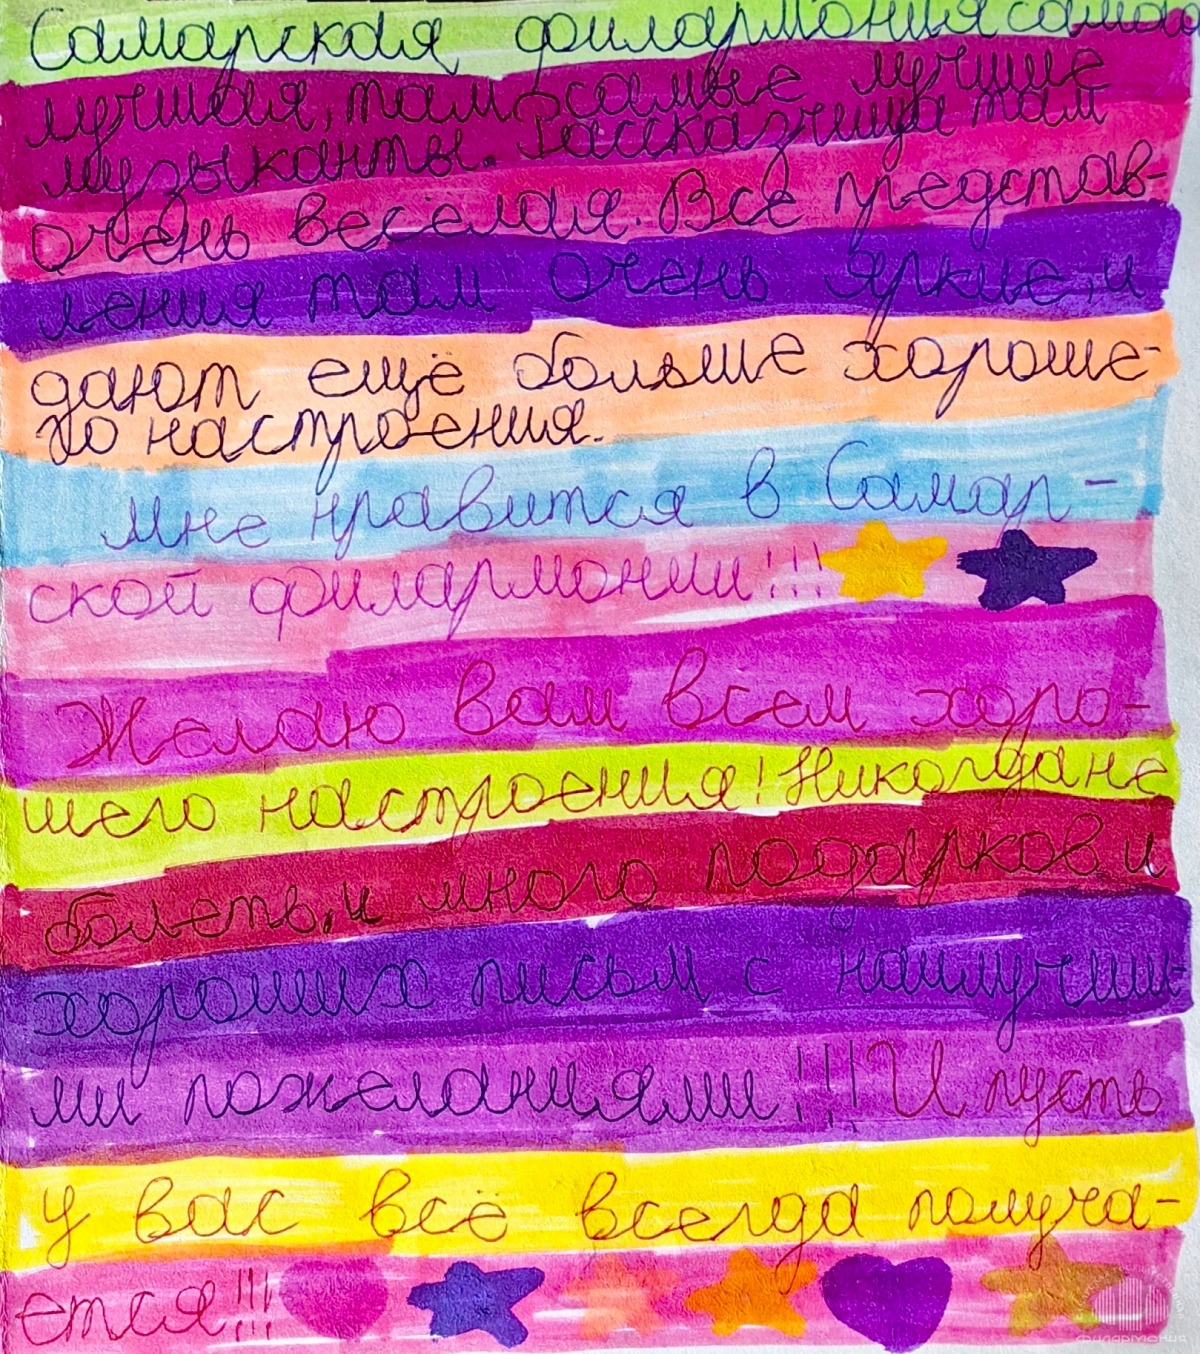 Самарская филармония самая
лучшая, там самые лучшие
музыканты. Рассказчица там
очень весёлая. Все представ-
ления там очень яркие, и
дают ещё больше хороше-
го настроения.
Мне нравится в Самар-
ской филармонии!!!
Желаю вам всем хоро-
шего настроения! Никогда не
болеть, и много подарков и
хороших писем с наилучши-
ми пожеланиями!!! И пусть
у вас всё всегда получа-
ется!!!
филармония